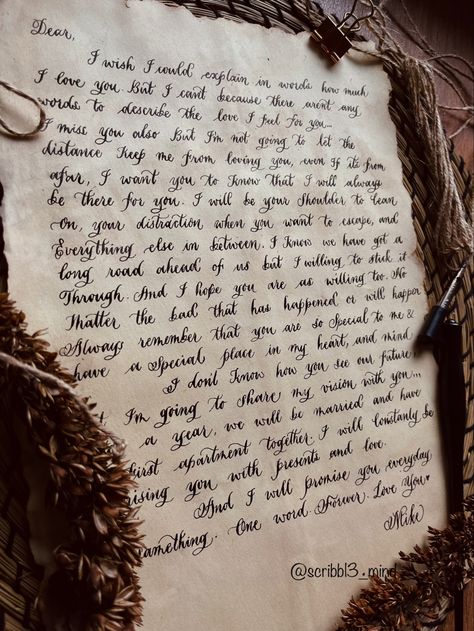 Dear,
I wish I could explain in words how much
I love you. But I can't because there aren't any
words to describe the love I feel for you...
I miss you also But I'm not going to let the
distance Keep me from loving you, even If its from
afar, I want you to Know that I will always
be there for you. I will be your Shoulder to lean
On, your distraction when you want to escape, and
Everything else in between. I Know we have got a
long road ahead of us but I willing to stick it
Through. And I hope you are as willing too. No
Matter the bad that has happened or will happen
Always remember that you are so Special to me &
have a Special place in my heart, and mind
I don't Know how you see our future,
I'm going to share my vision with you...
a year, we will be married and have
first apartment together. I will constantly be
rising you with presents and love.
And I will promise you everyday,
Something. One word. Forever. Love You♥
Mike
@scribbl3_mind